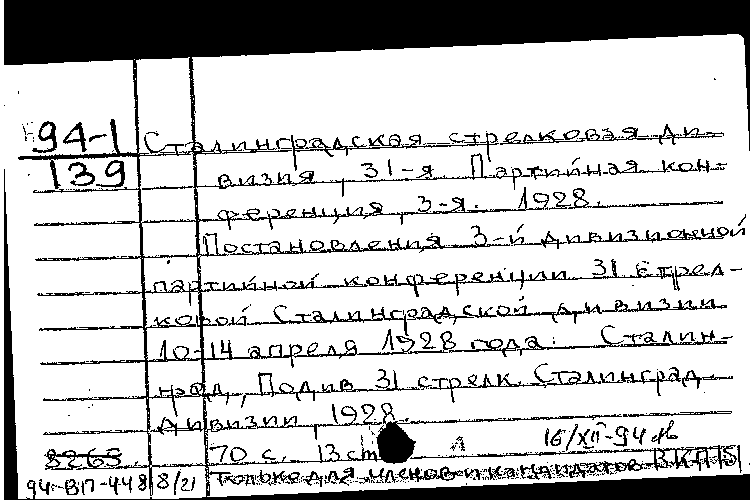 94-1 Сталинградская стрелковая ди-
139 визия, 31-я. Партийная кон-
ференция, 3-я. 1928.
Постановления 3-й дивизионной
партийной конференции 31 стрел-
ковой Сталинградской дивизии
10-14 апреля 1928 года. Сталин-
град, Подив 31 стрелк. Сталинград.
дивизии, 1928.
8263 70 с. 13 cm 16/XII-94
94-ВП-448 8/21 Только для членов и кандидатов ВКП(б)